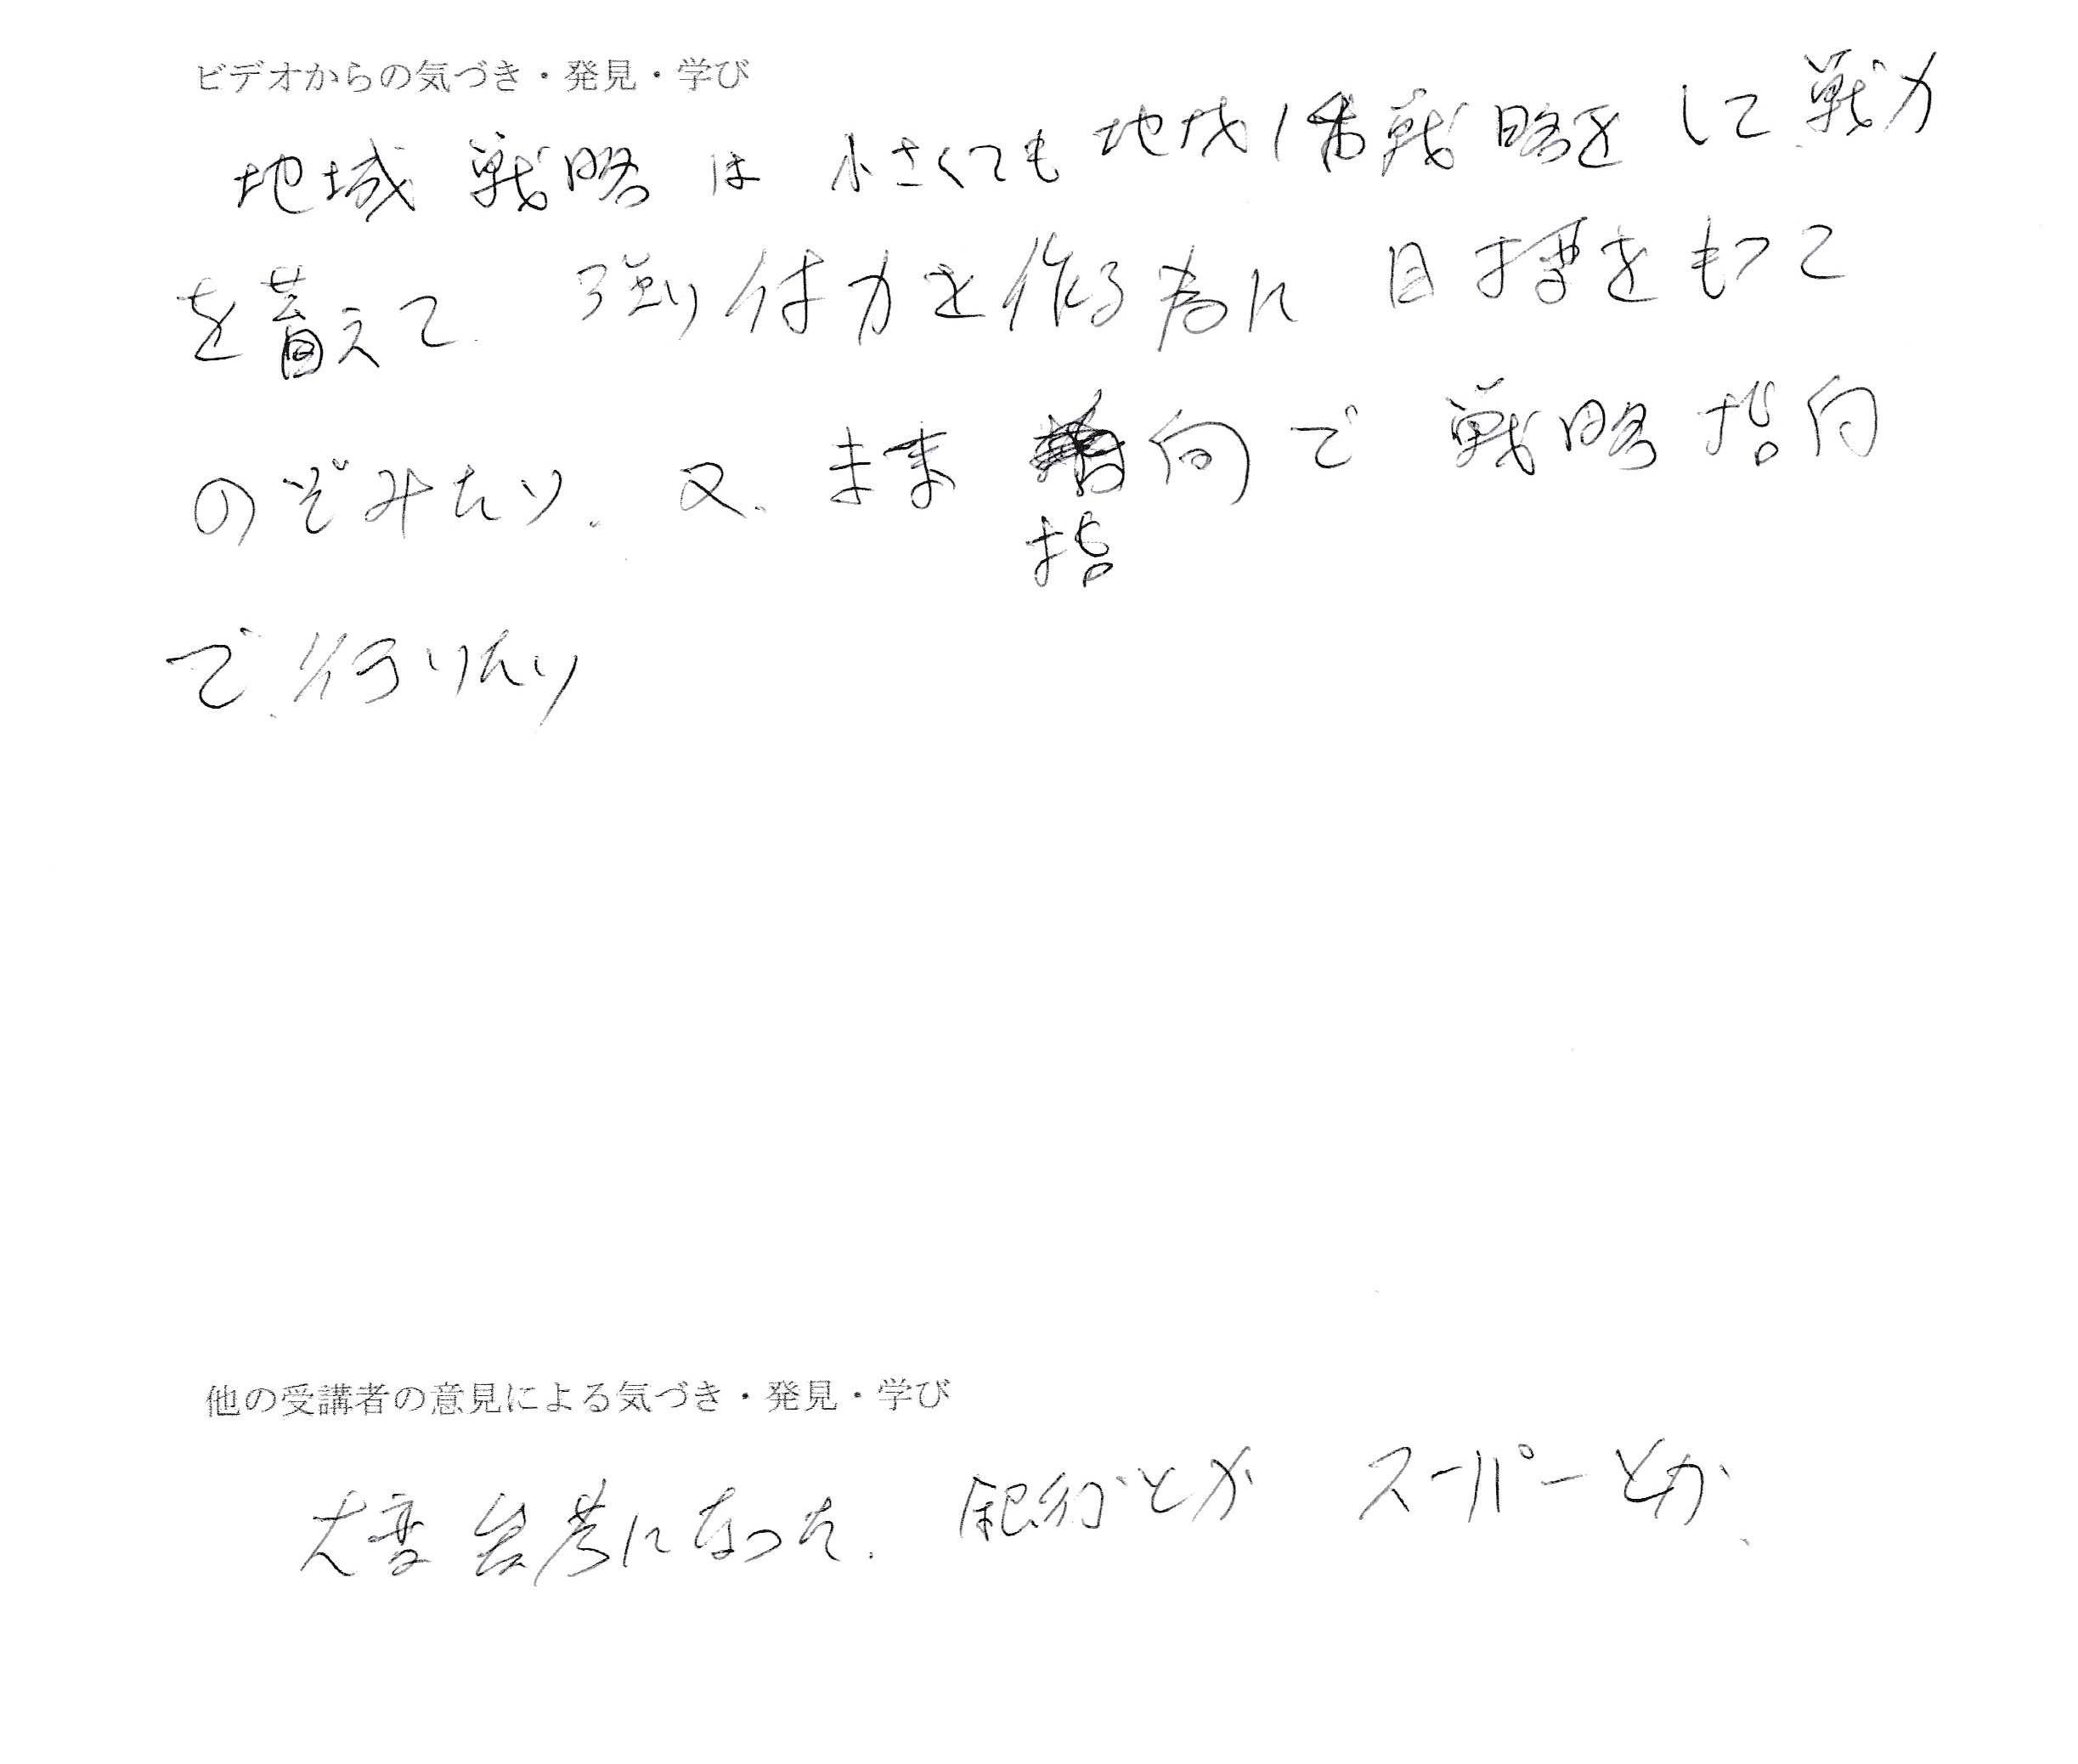 ビデオからの気づき・発見・学び
地域 戦略 は 小さくても 地域1位戦略を して 戦力
を蓄えて 強い体力を作る為に 目標をもって
のぞみたい. 又. 未来 指向で 戦略指向
で行いたい
他の受講者の意見による気づき・発見・学び
大変 参考になった. 銀行とか スーパーとか.